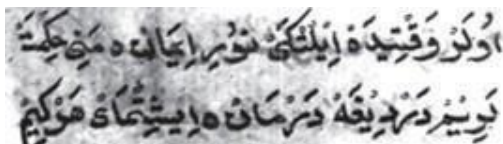 اُولَرْ وَقْتِيدَهْ اِيلَتْكَىْ نُوْرِ اِيمَانْ ه مَنِى حِكْمَتْ
لَرِيمْ دَرْدِيغَهْ دَرْمَانْ ه اِيشِتْمَاىْ هَرْكِيمْ